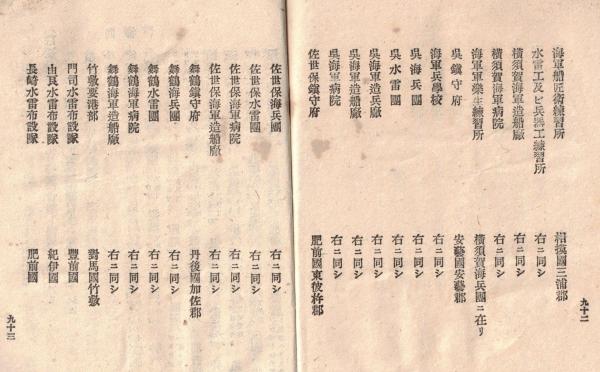 海軍船匠術練習所 相摸國三浦郡
水雷工及ビ兵器工練習所 右ニ同シ
横須賀海軍造船廠 右ニ同シ
横須賀海軍病院 右ニ同シ
海軍軍樂生練習所 横須賀海兵團ニ在リ
呉鎭守府 安藝國安藝郡
海軍兵學校 右ニ同シ
呉海兵團 右ニ同シ
呉水雷團 右ニ同シ
呉海軍造兵廠 右ニ同シ
呉海軍造船廠 右ニ同シ
呉海軍病院 右ニ同シ
佐世保鎭守府 肥前國東彼杵郡
九十二
佐世保海兵團 右ニ同シ
佐世保水雷團 右ニ同シ
佐世保海軍病院 右ニ同シ
佐世保海軍造船廠 右ニ同シ
舞鶴鎭守府 丹後國加佐郡
舞鶴海兵團 右ニ同シ
舞鶴水雷團 右ニ同シ
舞鶴海軍病院 右ニ同シ
舞鶴海軍造船廠 右ニ同シ
竹敷要港部 對馬國竹敷
門司水雷布設隊 豐前國
由良水雷布設隊 紀伊國
長崎水雷布設隊 肥前國
九十三